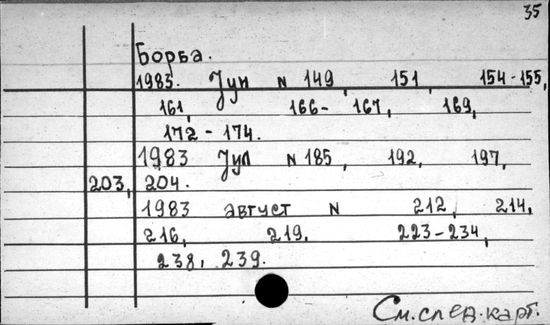 35
Борба.
1983. Јун N 149, 151, 154-155,
161, 166- 167, 169,
172-174.
1983 Јул N 185, 192, 197,
203, 204.
1983 август N 212, 214,
216, 219, 223-234,
238, 239.
См.след.карт.